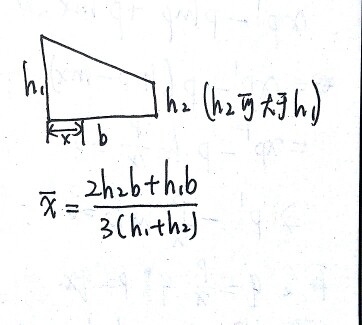 h₁
h₂ (h₂可大于h₁)
x b
x̄ = (2h₂b+h₁b)/(3(h₁+h₂))